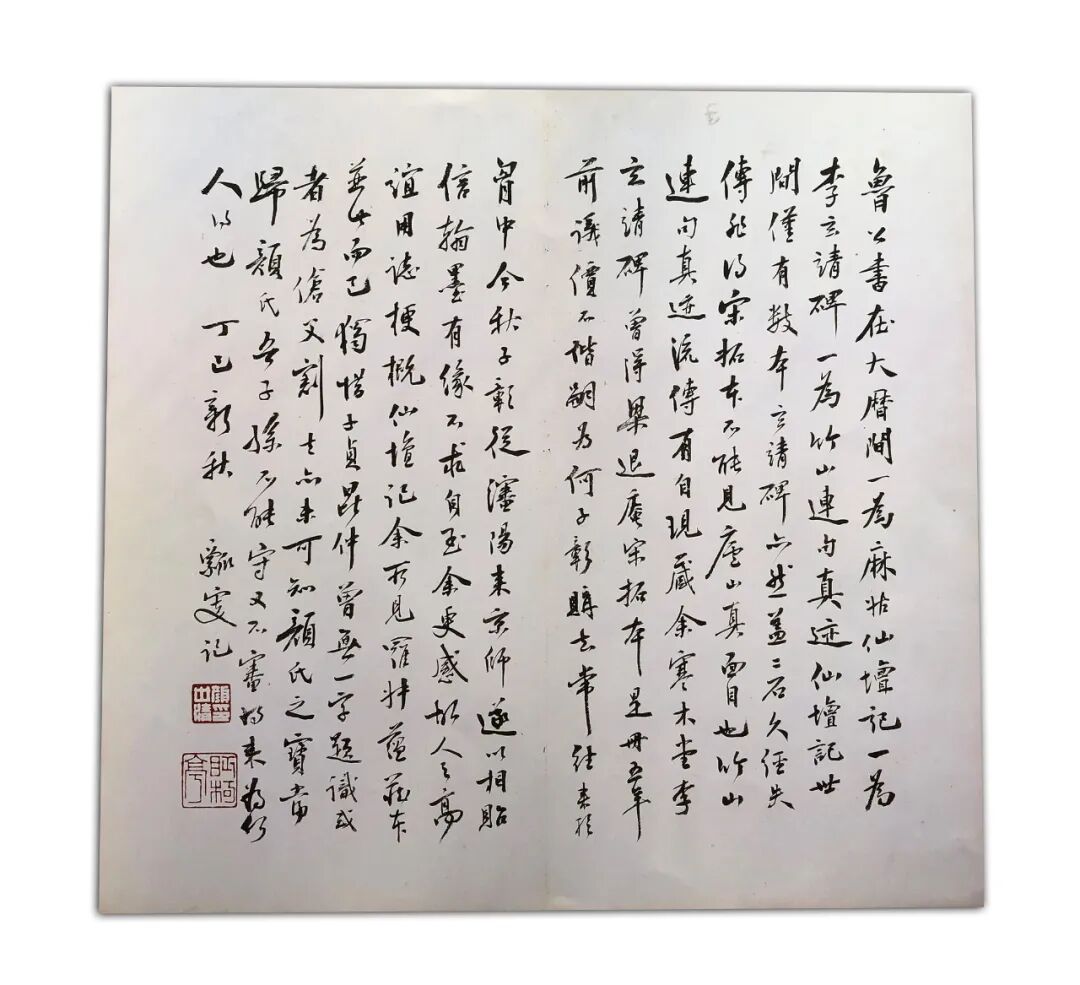 魯公書在大曆間一為麻姑仙壇記一為
李玄靖碑一為竹山連句真迹仙壇記世
間僅有數本玄靖碑亦然蓋二石久經失
傳非得宋拓本不能見廬山真面目也竹山
連句真迹流傳有自現藏余寒木堂李
玄靖碑曾得梁退庵宋拓本是冊五年
前議價不諧嗣為何子彰購去常往來於
胷中今秋子彰從瀋陽來京師遂以相貽
信翰墨有緣不求自至余更感故人之高
誼用誌梗概仙壇記余所見羅牧蘊莊本
並此而已獨惜子貞昆仲曾無一字題識或
者為傖父割去亦未可知顏氏之寶當
歸顏氏吾子孫不能守又不審將來為何
人得也 丁巳新秋 瓢叟記